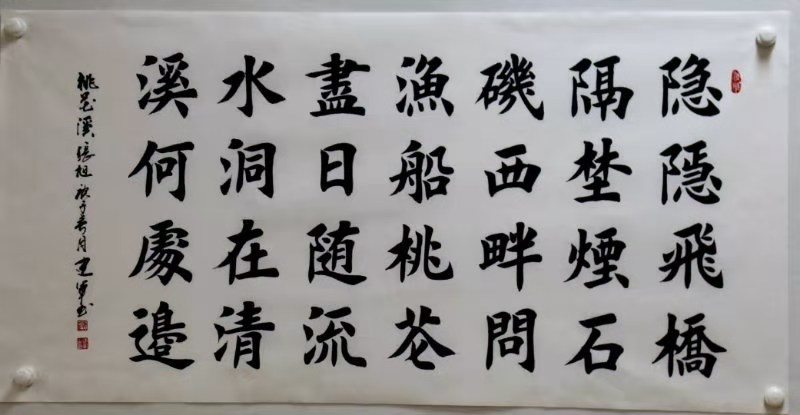 隐隠飛橋
隔埜煙石
磯西畔問
漁船桃花
盡日随流
水洞在清
溪何處邊
桃花溪張旭 春月 書